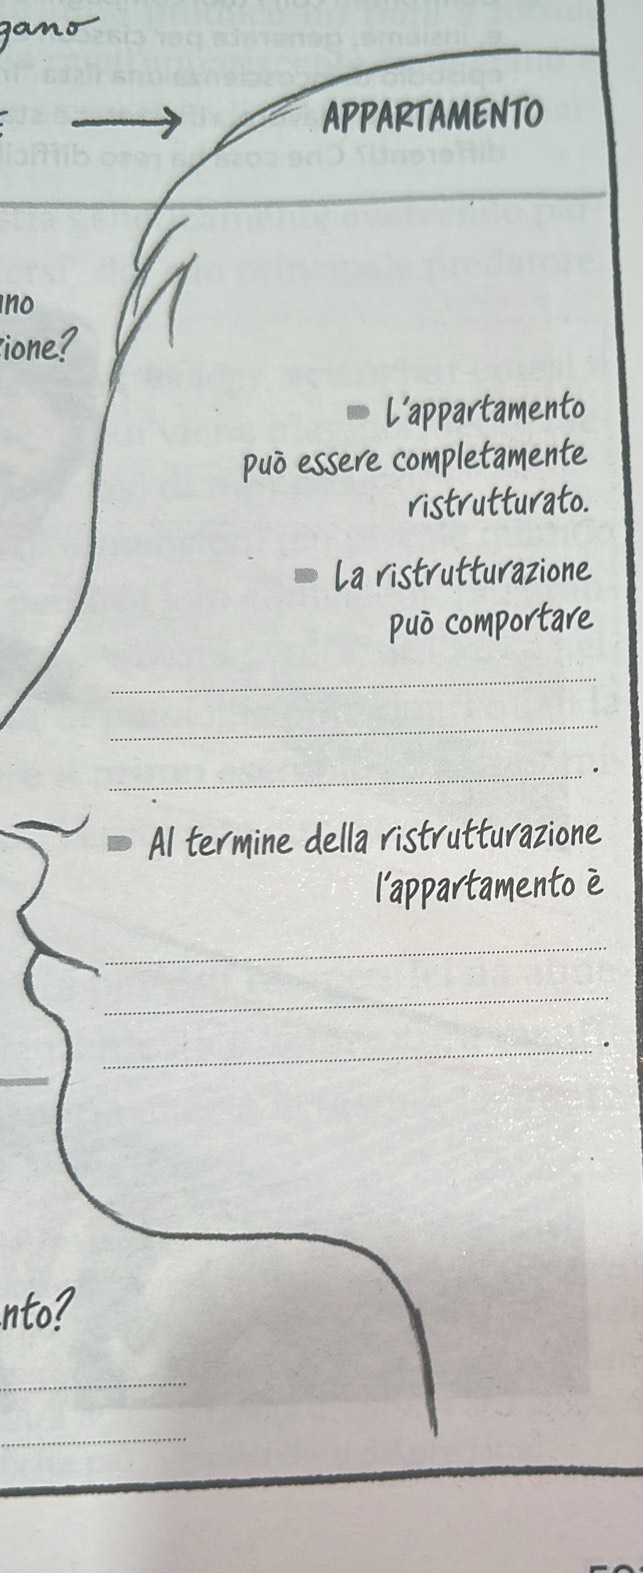 gano
APPARTAMENTO
ino
zione?
L'appartamento
può essere completamente
ristrutturato.
La ristrutturazione
può comportare
.
Al termine della ristrutturazione
l'appartamento è
.
nto?